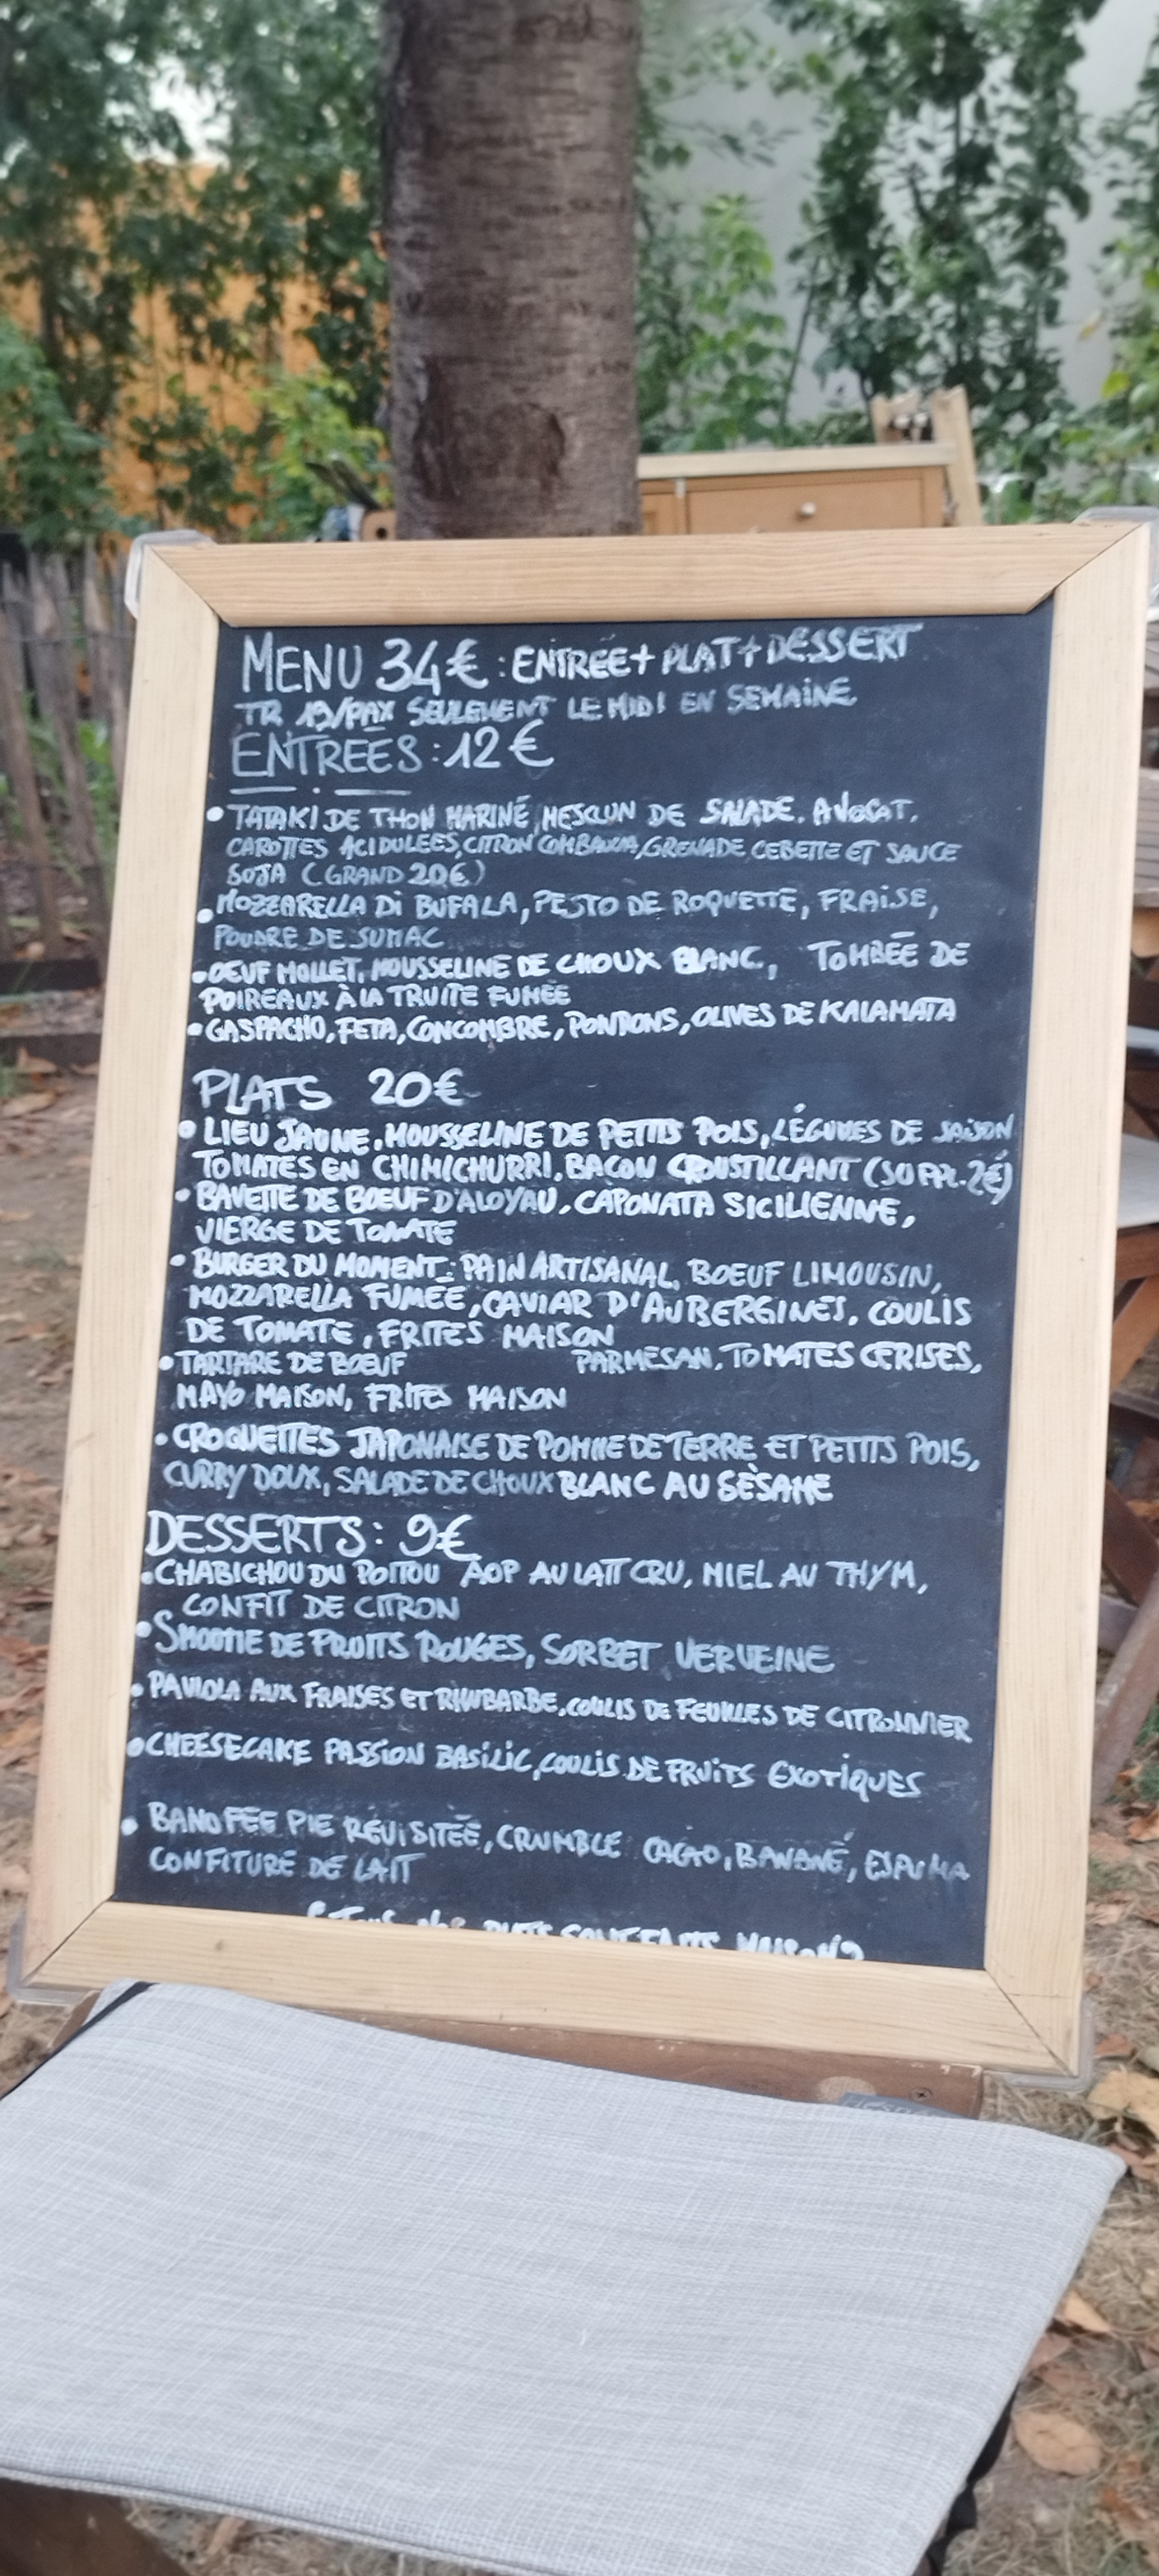 MENU 34€ : ENTRÉE + PLAT + DESSERT
TR 19/PAX SEULEMENT LE MIDI EN SEMAINE
ENTREES : 12€
• TATAKI DE THON MARINÉ, MESCLUN DE SALADE. AVOCAT,
CAROTTES ACIDULÉES, CITRON COMBAWA, GRENADE, CEBETTE ET SAUCE
SOJA (GRAND 20€)
• MOZZARELLA DI BUFALA, PESTO DE ROQUETTE, FRAISE,
POUDRE DE SUMAC
• OEUF MOLLET, MOUSSELINE DE CHOUX BLANC, TOMBÉE DE
POIREAUX À LA TRUITE FUMÉE
• GASPACHO, FETA, CONCOMBRE, POIVRONS, OLIVES DE KALAMATA
PLATS 20€
• LIEU JAUNE, MOUSSELINE DE PETITS POIS, LÉGUMES DE SAISON
TOMATES EN CHIMICHURRI, BACON CROUSTILLANT (SUPPL. 2€)
• BAVETTE DE BOEUF D'ALOYAU, CAPONATA SICILIENNE,
VIERGE DE TOMATE
• BURGER DU MOMENT : PAIN ARTISANAL, BOEUF LIMOUSIN,
MOZZARELLA FUMÉE, CAVIAR D'AUBERGINES, COULIS
DE TOMATE, FRITES MAISON
• TARTARE DE BOEUF PARMESAN, TOMATES CERISES,
MAYO MAISON, FRITES MAISON
• CROQUETTES JAPONAISE DE POMME DE TERRE ET PETITS POIS,
CURRY DOUX, SALADE DE CHOUX BLANC AU SÈSAME
DESSERTS : 9€
• CHABICHOU DU POITOU AOP AU LAIT CRU, MIEL AU THYM,
CONFIT DE CITRON
• SMOOTIE DE FRUITS ROUGES, SORBET VERVEINE
• PAVLOLA AUX FRAISES ET RHUBARBE, COULIS DE FEUILLES DE CITRONNIER
• CHEESECAKE PASSION BASILIC, COULIS DE FRUITS EXOTIQUES
• BANOFEE PIE REVISITÉE, CRUMBLE CACAO, BANANE, ESPUMA
CONFITURE DE LAIT
TOUS NOS PLATS SONT FAITS MAISON